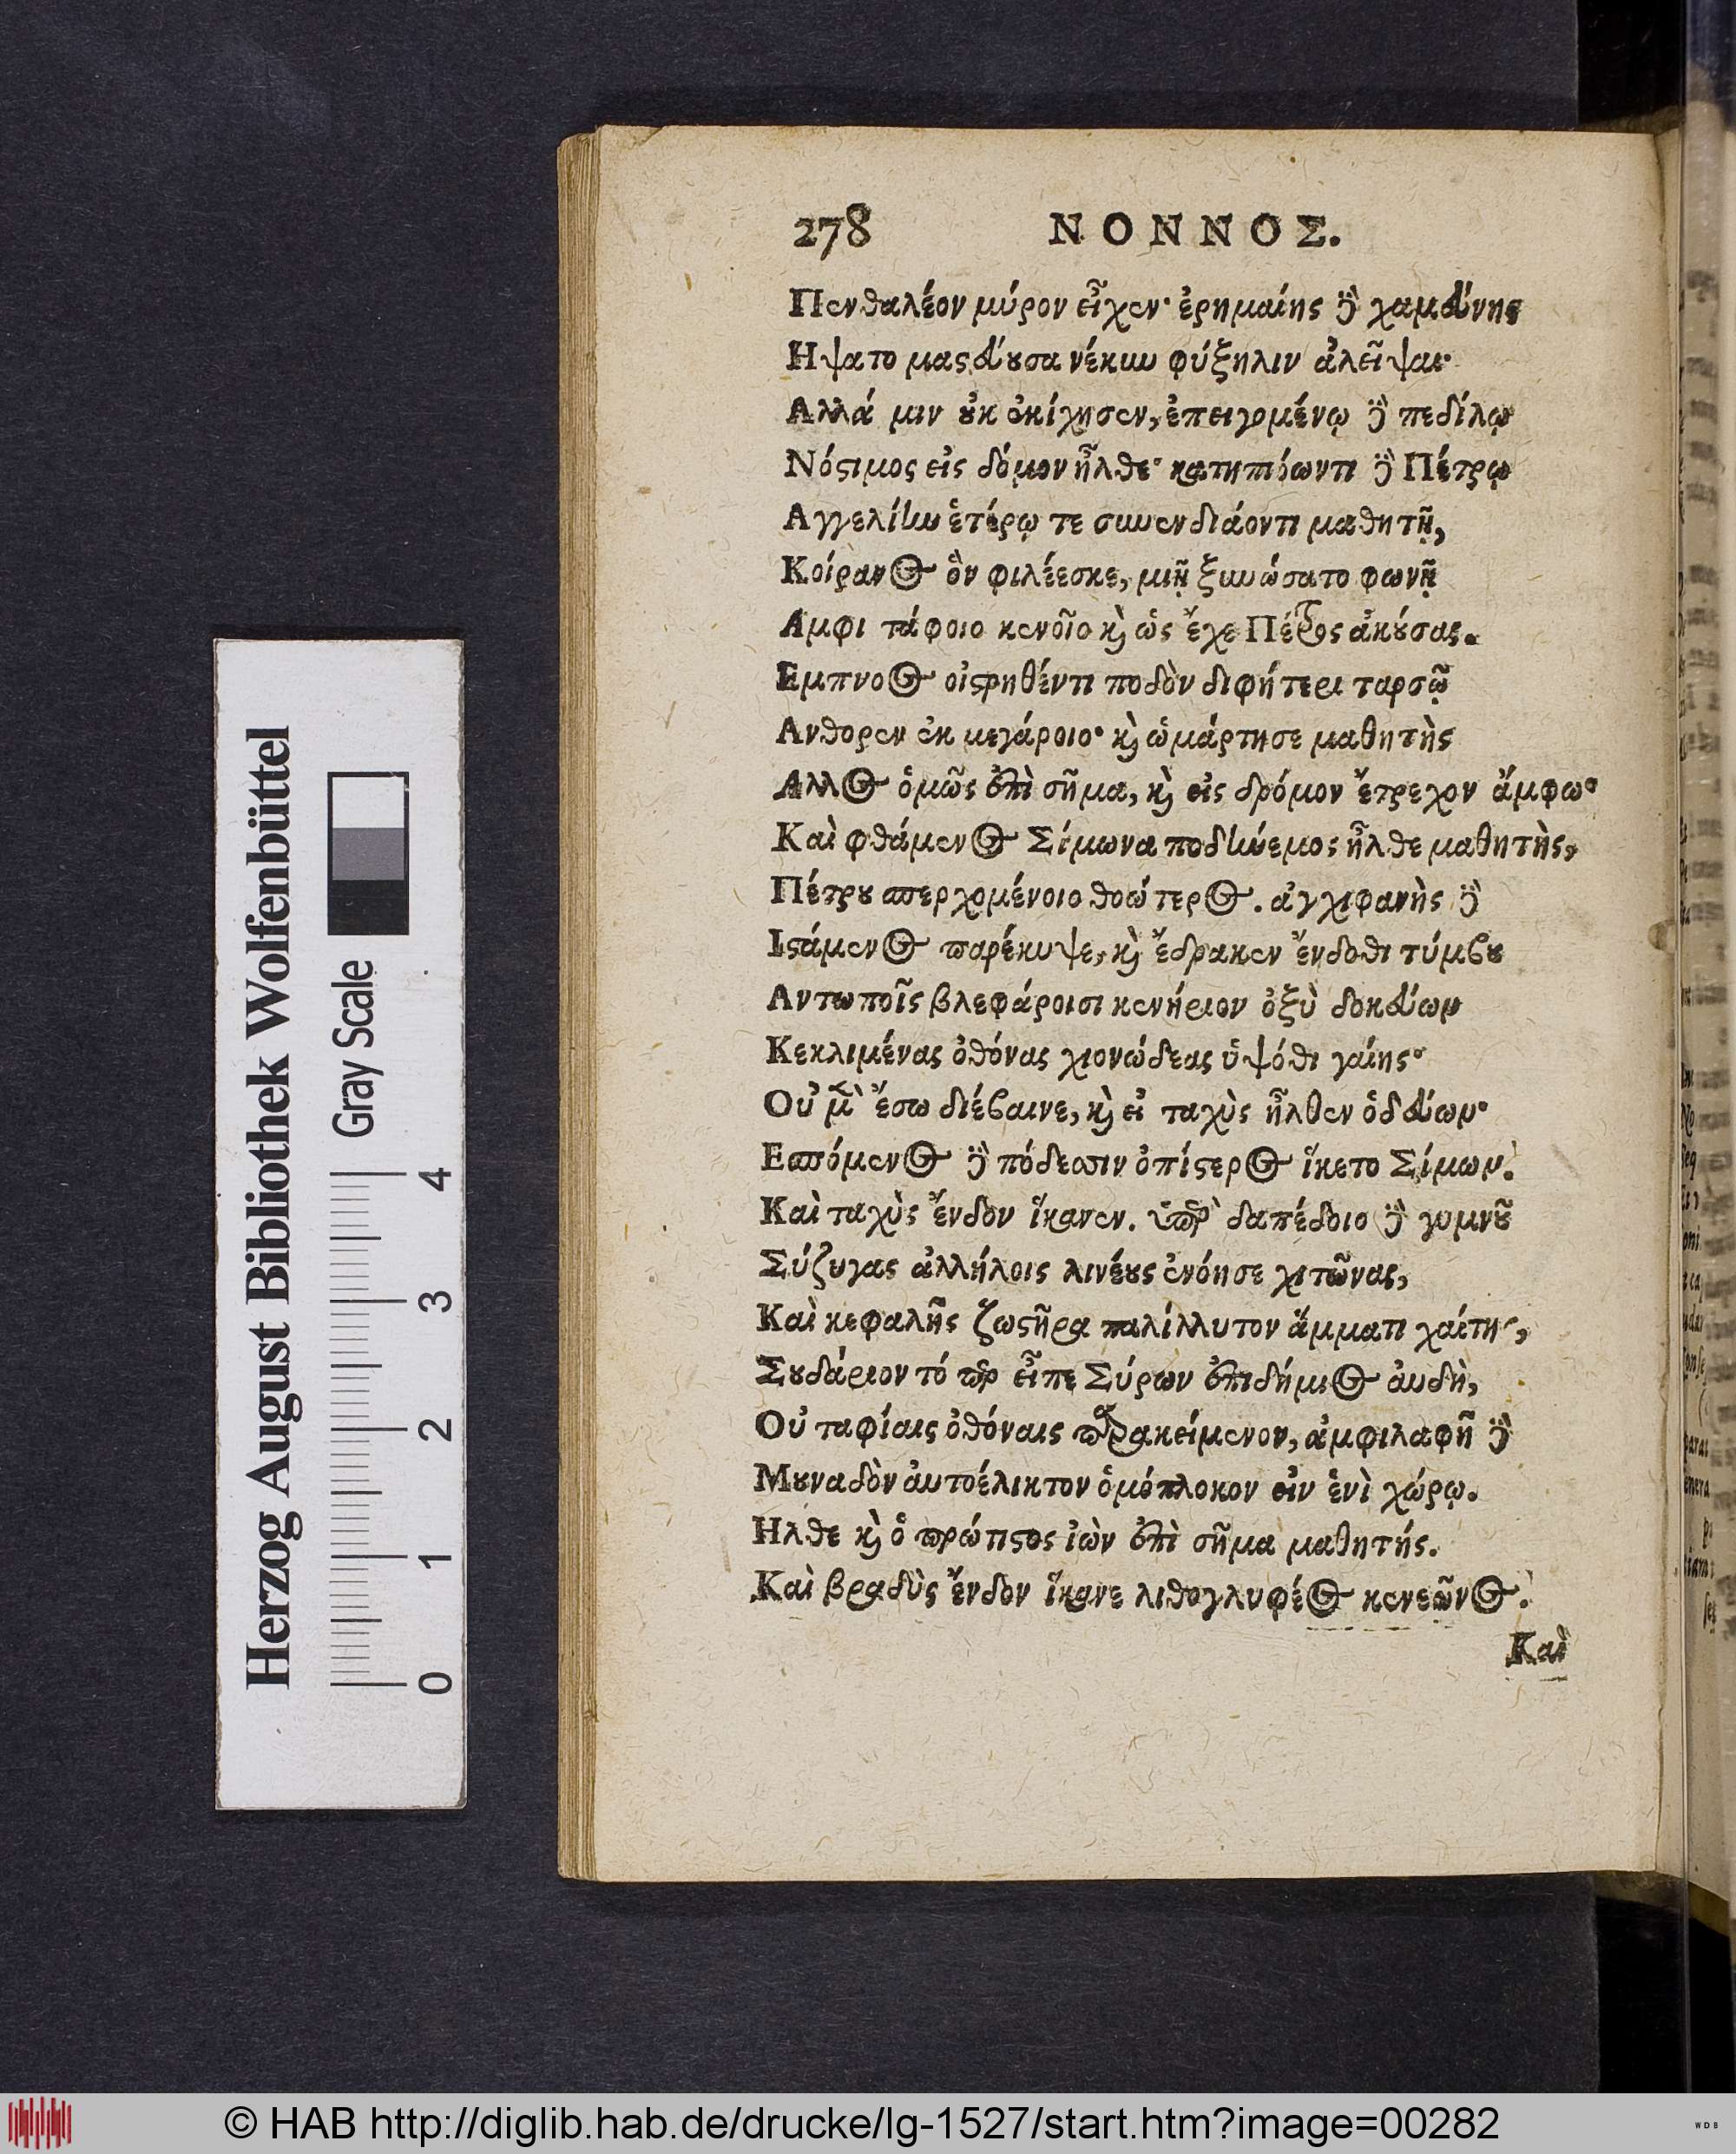 278 ΝΟΝΝΟΣ.
Πενθαλέον μύρον εἶχεν· ἐρημαίης ȣ̓̀ χαμεύνης
Ηψατο μαςεύȣσα νέκυν φύξηλιν ἀλεῖψαι·
Αλλά μιν ȣ̓κ ἐκίχησεν, ἐπειγομένῳ δὲ πεδίλῳ
Νόςιμος εἰς δόμον ἦλθε· κατηπιόωντι δὲ Πέτρῳ
Αγγελίην ἑτέρῳ τε συνενδιάοντι μαθητῇ,
Κοίρανος ὃν φιλέεσκε, μιῇ ξυνώσατο φωνῇ
Αμφι τάφοιο κενοῖο κὶ ὡς ἔχε Πέτρος ἀκȣ́σας.
Εμπνοος οἰςρηθέντι ποδὸν διφήτερι ταρσῷ
Ανθορεν ἐκ μεγάροιο· κὶ ὡμάρτησε μαθητὴς
Αλλος ὁμῶς ἐπὶ σῆμα, κὶ εἰς δρόμον ἔτρεχον ἄμφω·
Καὶ φθάμενος Σίμωνα ποδήνεμος ἦλθε μαθητὴς,
Πέτρȣ σπερχομένοιο θοώτερος. ἀγχιφανὴς δὲ
Ιςάμενος παρέκυψε, κὶ ἔδρακεν ἔνδοθι τύμβȣ
Αντωποῖς βλεφάροισι κενήριον ὀξὺ δοκεύων
Κεκλιμένας ὀθόνας χιονώδεας ὑψόθι γαίης·
Οὐ μὲν ἔσω διέβαινε, κὶ εἰ ταχὺς ἦλθεν ὁδεύων·
Εσπόμενος δὲ πόδεσσιν ὀπίςερος ἵκετο Σίμων.
Καὶ ταχὺς ἔνδον ἵκανεν. ὑπὲρ δαπέδοιο δὲ γυμνȣ͂
Σύζυγας ἀλλήλοις λινέȣς ἐνόησε χιτῶνας,
Καὶ κεφαλῆς ζωςῆρα παλίλλυτον ἄμματι χαίτης,
Σȣδάριον τό περ εἶπε Σύρων ἐπιδήμιος ἀυδὴ,
Οὐ ταφίαις ὀθόναις παρακείμενον, ἀμφιλαφῆ δὲ
Μȣναδὸν ἀυτοέλικτον ὁμόπλοκον εἰν ἑνὶ χώρῳ.
Ηλθε κὶ ὁ πρώτιςος ἰὼν ἐπὶ σῆμα μαθητής.
Καὶ βραδὺς ἔνδον ἵκανε λιθογλυφέος κενεῶνος.
Καὶ
Herzog August Bibliothek Wolfenbüttel
Gray Scale
0 1 2 3 4
© HAB http://diglib.hab.de/drucke/lg-1527/start.htm?image=00282
WDB